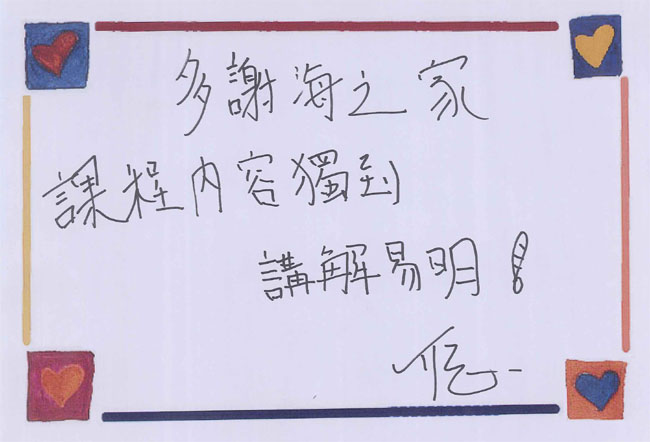 多謝海之家
課程內容獨到
講解易明!